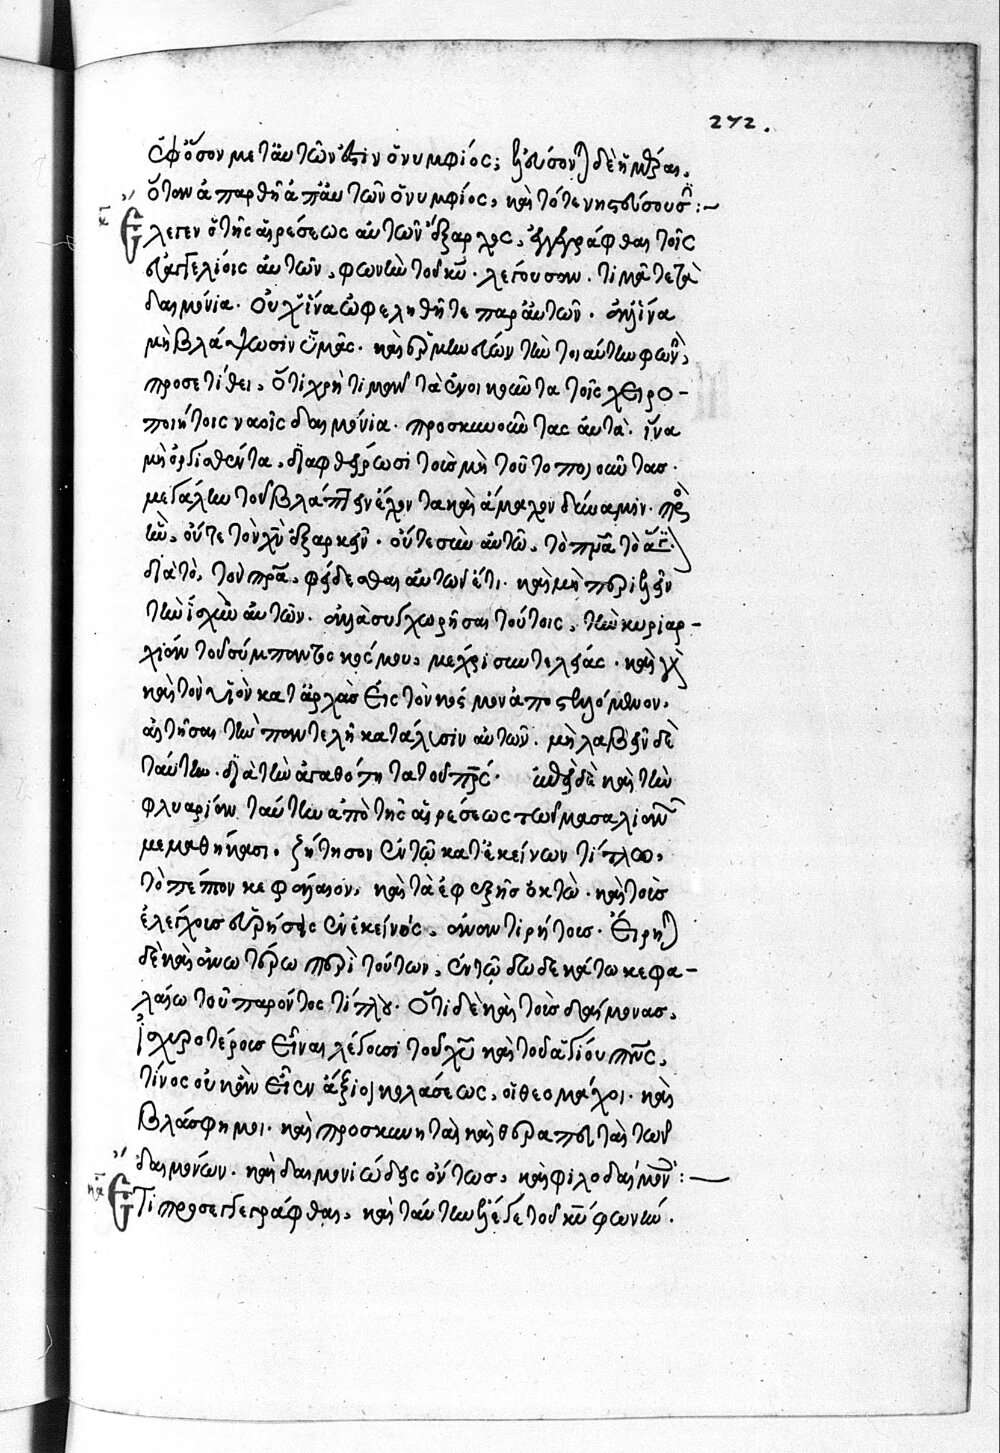 272.
ἐφ' ὅσον μετ' αὐτῶν ἐστιν ὁ νυμφίος; ἐλεύσονται δὲ ἡμέραι,
ὅταν ἀπαρθῇ ἀπ' αὐτῶν ὁ νυμφίος, καὶ τότε νηστεύσουσιν :~
κ Ἔλεγεν ὁ τῆς αἱρέσεως αὐτῶν ἔξαρχος, ἐγγεγράφθαι τοῖς
εὐαγγελίοις αὐτῶν, φωνὴν τοῦ κυ. λέγουσαν. τιμᾶτε τὰ
δαιμόνια. οὐχ ἵνα ὠφεληθῆτε παρ' αὐτῶν. ἀλλ' ἵνα
μὴ βλάψωσιν ὑμᾶς. καὶ ἑρμηνεύων τὴν τοιαύτην φωνὴν,
προσετίθει, ὅτι χρὴ τιμᾶν τὰ ἐνοικοῦντα τοῖς χειρο-
ποιήτοις ναοῖς δαιμόνια. προσκυνοῦντας αὐτά. ἵνα
μὴ ὀργισθέντα, διαφθείρωσι τοὺς μὴ τοῦτο ποιοῦντας.
μεγάλην τοῦ βλάπτειν ἔχοντα καὶ ἄμαχον δύναμιν. πρὸς
ἣν, οὔτε τὸν χν ἐξαρκεῖν. οὔτε σὺν αὐτῷ, τὸ πνα τὸ ἅγιον
διὰ τὸ, τὸν πρα, φείδεσθαι αὐτῶν ἔτι. καὶ μὴ περιελεῖν
τὴν ἰσχὺν αὐτῶν. ἀλλὰ συγχωρῆσαι τούτοις, τὴν κυριαρ-
χίαν τοῦ σύμπαντος κόσμου, μέχρι συντελείας. καὶ γὰρ
καὶ τὸν υἱὸν κατ' ἀρχὰς εἰς τὸν κόσμον ἀποστελλόμενον,
αἰτῆσαι τὴν παντελῆ κατάλυσιν αὐτῶν. μὴ λαβεῖν δὲ
ταύτην. διὰ τὴν ἀγαθότητα τοῦ πρς. καὶ τὴν
φλυαρίαν ταύτην ἀπὸ τῆς αἱρέσεως τῶν μασαλιανῶν
μεμαθήκασι. ζήτησον ἐν τῷ κατ' ἐκείνων τίτλω,
τὸ πέμπτον κεφάλαιον, καὶ τὰ ἐφεξῆς ὀκτώ. καὶ τοῖς
ἐλέγχοις εὑρήσεις ἐν ἐκείνοις, ἀναντιρήτοις. εἴρηται
δὲ καὶ ἀνωτέρω περὶ τούτων, ἐν τῷ δωδεκάτω κεφα-
λαίω τοῦ παρόντος τίτλου. ὅτι δὲ καὶ τοὺς δαίμονας,
ἰσχυροτέρους εἶναι λέγουσι τοῦ χυ καὶ τοῦ ἁγίου πνς,
τίνος οὐκ ἂν εἶεν ἄξιοι κολάσεως, οἱ θεομάχοι. καὶ
βλάσφημοι. καὶ προσκυνηταὶ καὶ θεραπευταὶ τῶν
δαιμόνων. καὶ δαιμονιώδεις ὄντως, καὶ φιλοδαίμονες :—
κα Ἔτι προσεγεγράφθαι, καὶ ταύτην τοῦ κυ φωνήν.